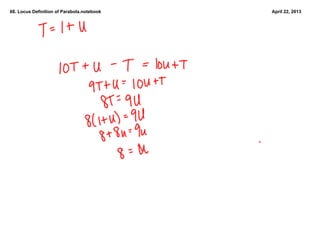 08. Locus Definition of Parabola.notebook
April 22, 2013
T = 1 + u
10T + u - T = 10u + T
9T + u = 10u + T
8T = 9u
8(1+u) = 9u
8 + 8u = 9u
8 = u